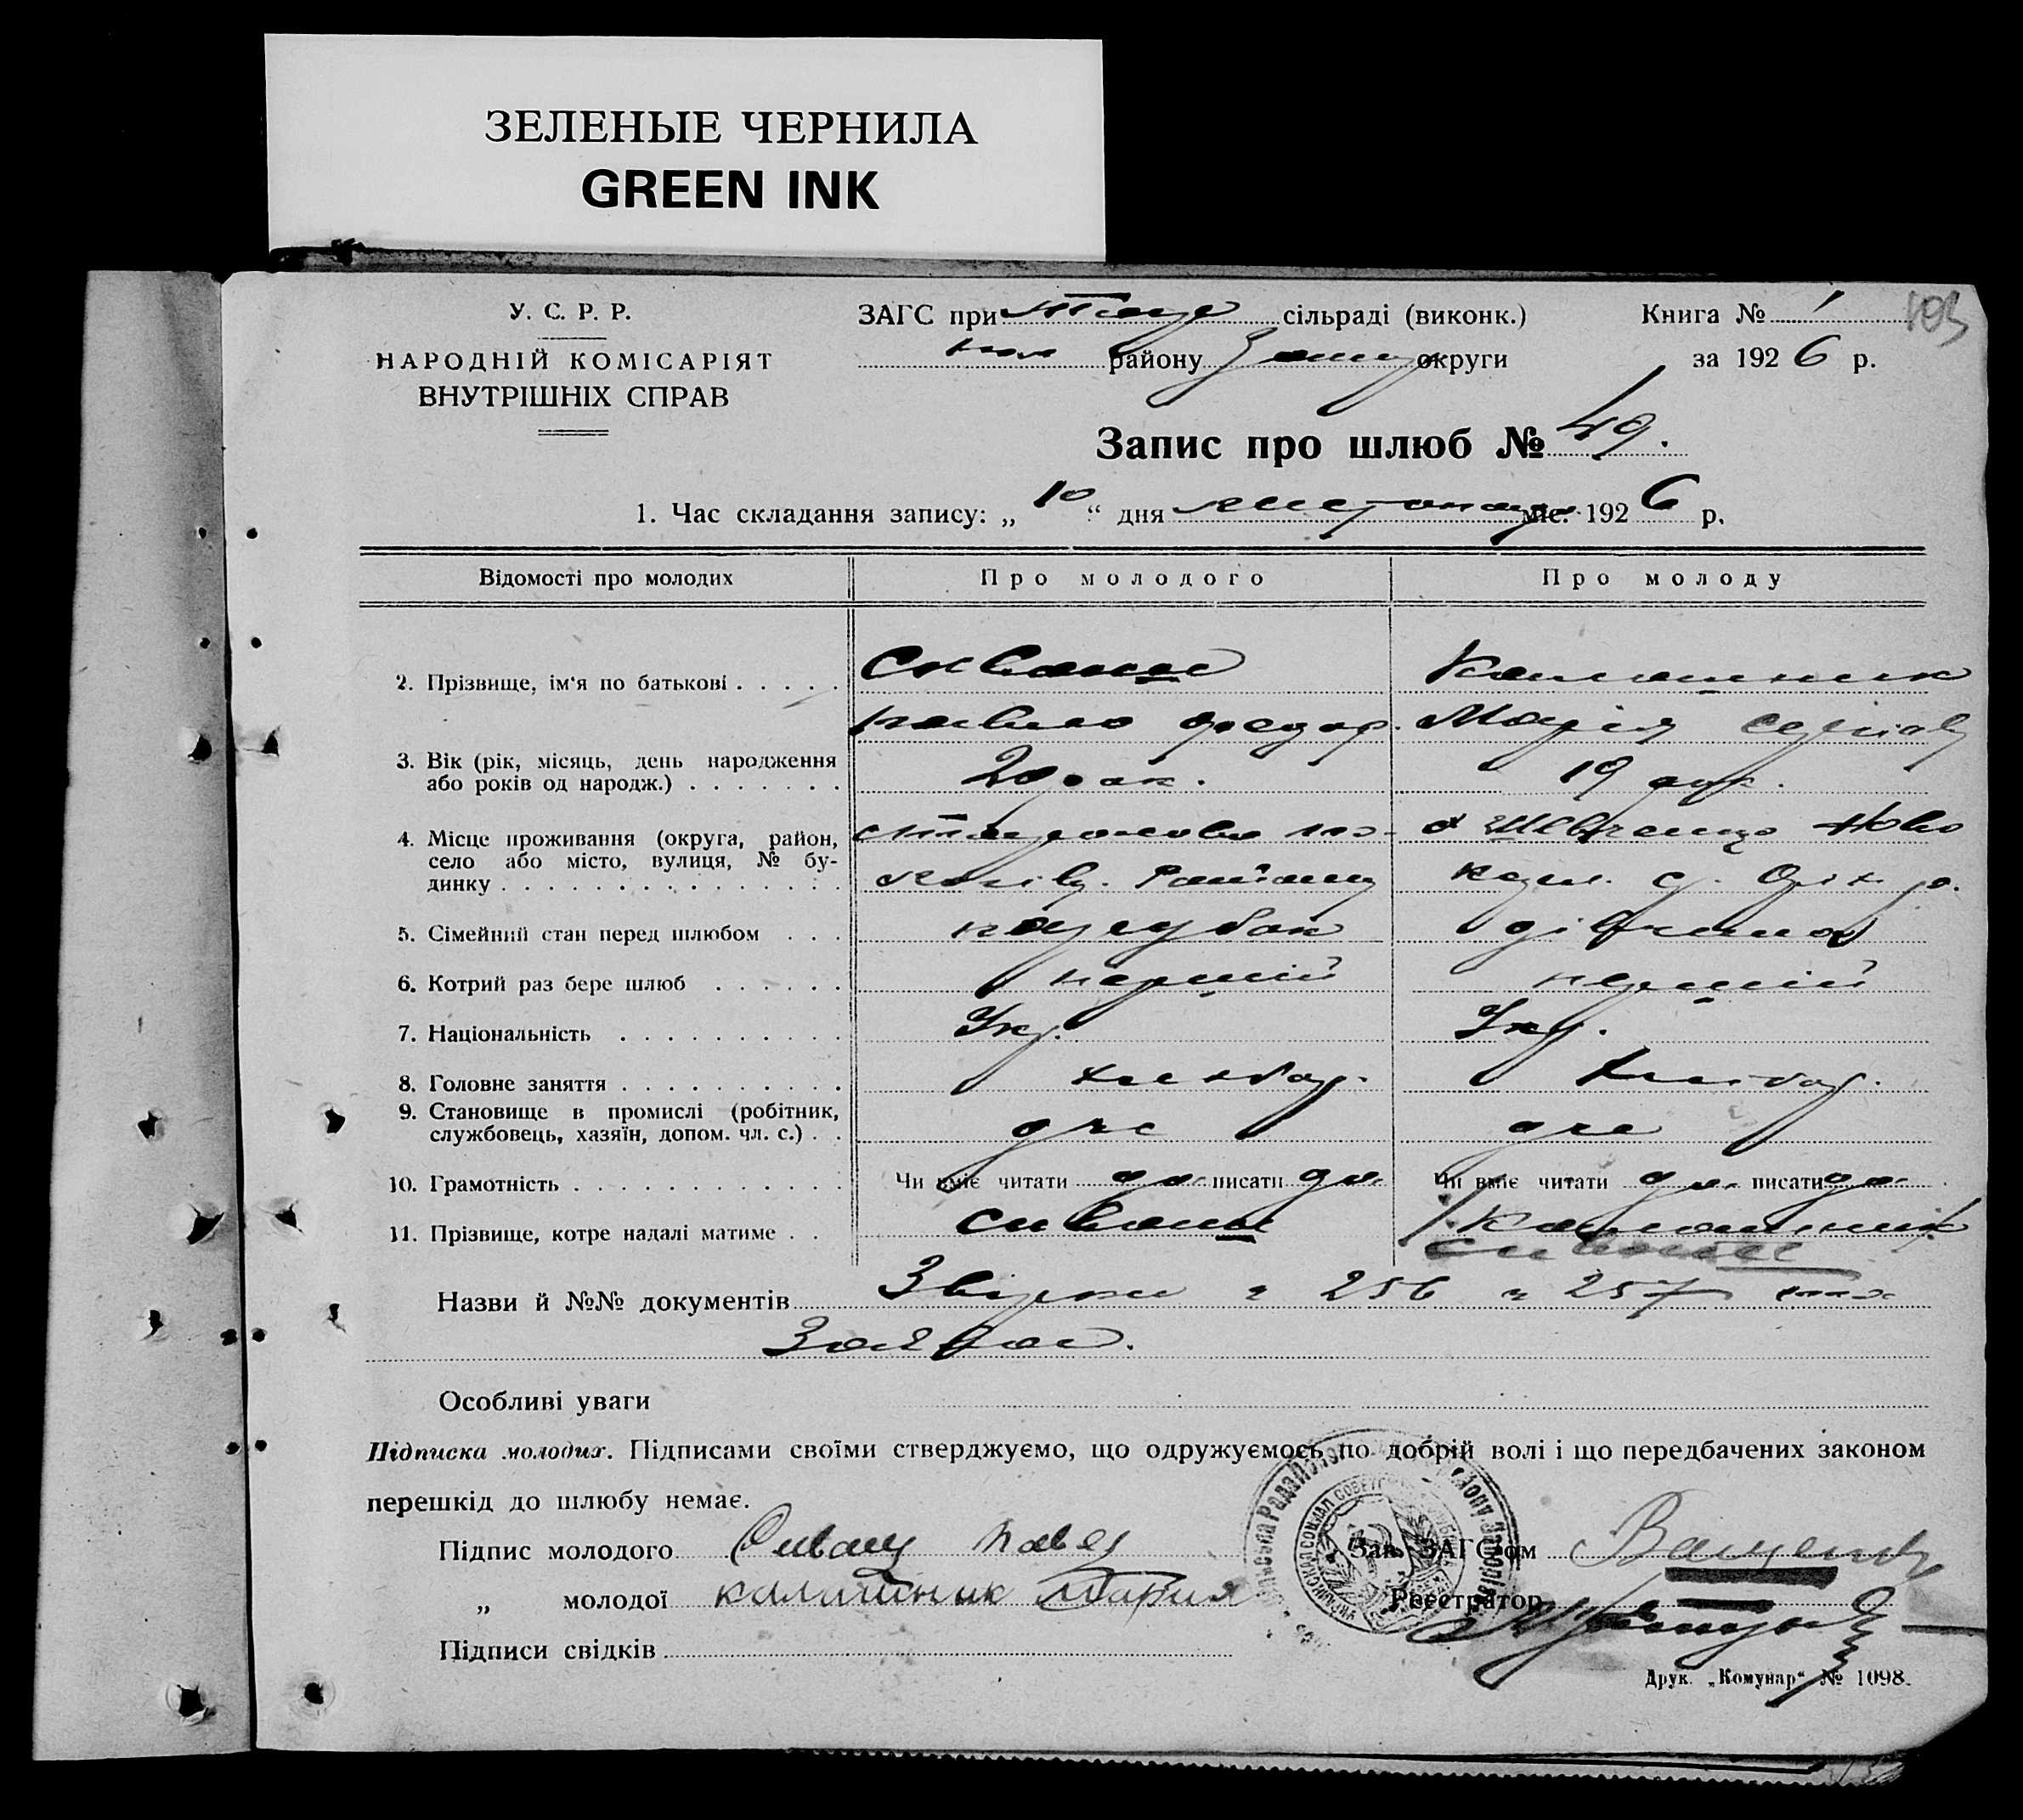 ЗЕЛЕНЫЕ ЧЕРНИЛА
GREEN INK
У. С. Р. Р.
НАРОДНІЙ КОМІСАРІЯТ
ВНУТРІШНІХ СПРАВ
ЗАГС при сільраді (виконк.)
району округи
Книга № 1
103
за 1926 р.
Запис про шлюб № 49.
1. Час складання запису: „10“ дня листопада міс. 1926 р.
Відомості про молодих
Про молодого
Про молоду
2. Прізвище, ім'я по батькові
Сиваш
Калашник
Павло Федор.
Марія
3. Вік (рік, місяць, день народження
або років од народж.)
20 рок.
19 рок.
4. Місце проживання (округа, район,
село або місто, вулиця, № бу-
динку
Району
5. Сімейний стан перед шлюбом
парубок
дівчина
6. Котрий раз бере шлюб
перший
перший
7. Національність
Укр.
Укр.
8. Головне заняття
хлібор.
хлібор.
9. Становище в промислі (робітник,
службовець, хазяїн, допом. чл. с.)
дчс
дчс
10. Грамотність
Чи вміє читати да писати да
Чи вміє читати да писати да
11. Прізвище, котре надалі матиме
Сиваш
Калашник
Сиваш
Назви й №№ документів 256 257
Особливі уваги
Підписка молодих. Підписами своїми стверджуємо, що одружуємось по добрій волі і що передбачених законом
перешкід до шлюбу немає.
Підпис молодого Сиваш Павел
Зав. ЗАГС'ом
„ молодої калашник Мария
Реєстратор
Підписи свідків
Друк. „Комунар“ № 1098.